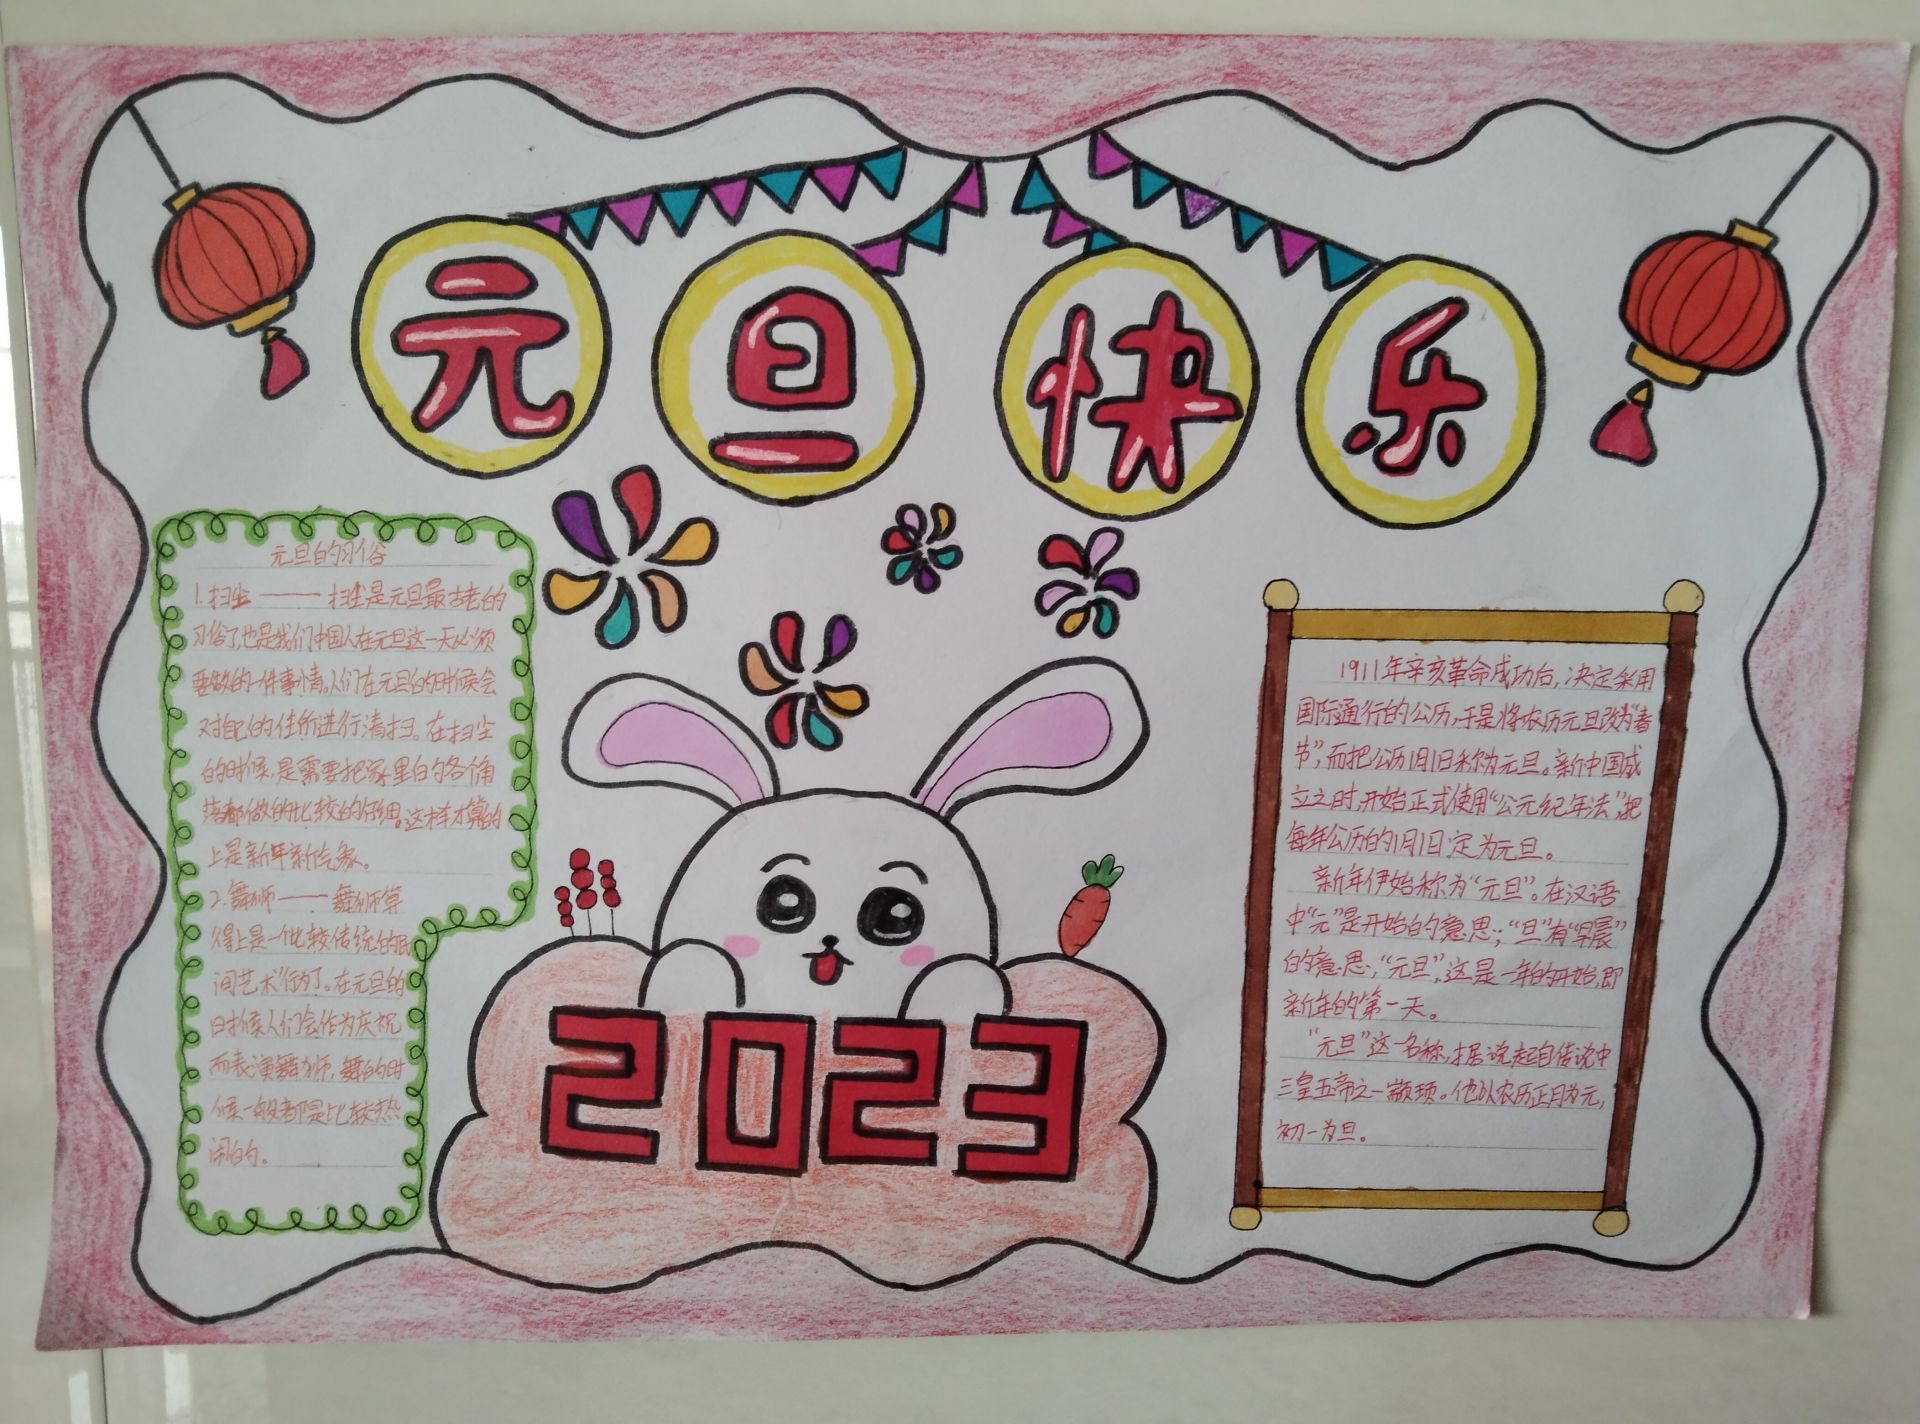 元旦快乐
元旦的习俗
1.扫尘——扫尘是元旦最古老的
习俗了,也是我们中国人在元旦这一天必须
要做的一件事情。人们在元旦的时候会
对自己的住所进行清扫。在扫尘
的时候,是需要把家里的各个角
落都做的比较的仔细。这样才算的
上是新年新气象。
2.舞狮——舞狮算
得上是一个比较传统的民
间艺术行为了。在元旦的
时候人们会作为庆祝
而表演舞狮,舞的时
候一般都是比较热
闹的。
2023
1911年辛亥革命成功后,决定采用
国际通行的公历,于是将农历元旦改为“春
节”,而把公历1月1日称为元旦。新中国成
立之时,开始正式使用“公元纪年法”,把
每年公历的1月1日定为元旦。
新年伊始称为“元旦”。在汉语
中“元”是开始的意思;“旦”有“早晨”
的意思;“元旦”,这是一年的开始,即
新年的第一天。
“元旦”这一名称,据说起自传说中
三皇五帝之一颛顼。他以农历正月为元,
初一为旦。